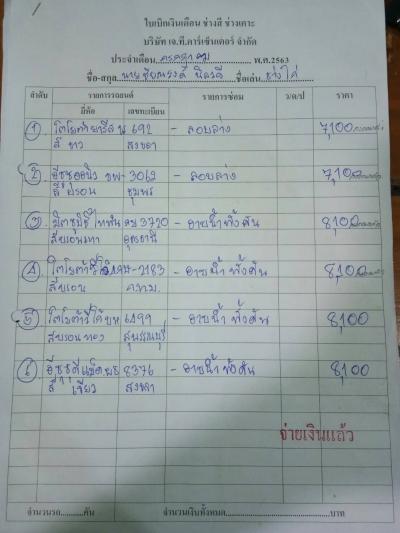 ใบเบิกเงินเดือน ช่างสี ช่างเคาะ
บริษัท เจ.ที.คาร์เซ็นเตอร์ จำกัด
ประจำเดือน กรกฎาคม พ.ศ.2563
ชื่อ-สกุล นาย ชื่อเล่น ช่างไก่
ลำดับ รายการรถยนต์ รายการซ่อม ว/ด/ป ราคา
ยี่ห้อ เลขทะเบียน
1 โตโยต้า 692 - รอบล่าง 7,100
สี ขาว สงขลา
2 อีซูซุ 3062 - รอบล่าง 7,100
สี บรอน ชุมพร
3 มิตซูบิชิ ไททัน 3720 - อาบน้ำทั้งคัน 8,100
สีบรอนเทา อุดรธานี
4 โตโยต้า 2183 - อาบน้ำ ทั้งคัน 8,100
สีบรอน กทม.
5 โตโยต้า 6499 - อาบน้ำ ทั้งคัน 8,100
สีบรอน ทอง สุพรรณบุรี
6 อีซูซุ 8376 - อาบน้ำ ทั้งคัน 8,100
สี เขียว สงขลา
จ่ายเงินแล้ว
จำนวนรถ คัน จำนวนเงินทั้งหมด บาท